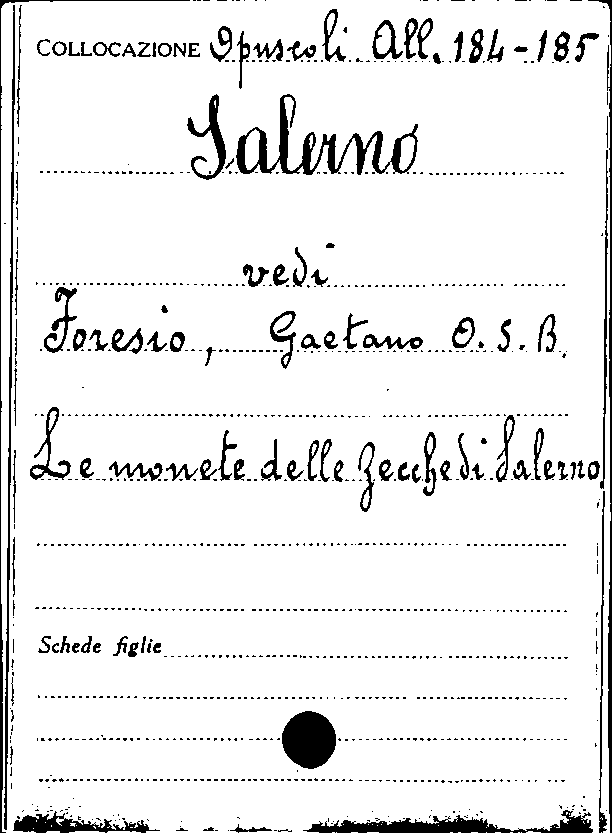 COLLOCAZIONE Opuscoli. All. 184-185
Salerno
vedi
Foresio, Gaetano O.S.B.
Le monete delle Zecche di Salerno
Schede figlie